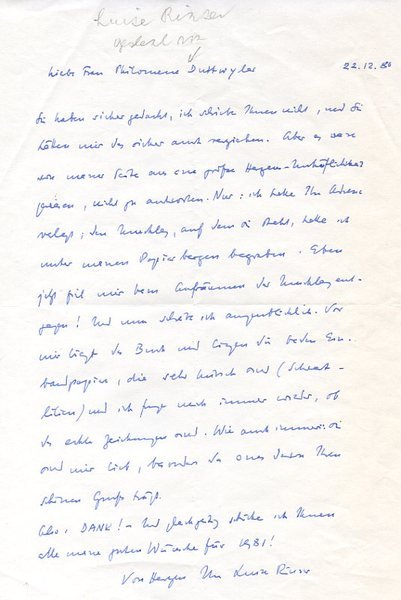 Luise Rinser
Liebe Frau Philomene Duttwyler 22.12.80
Sie haben sicher gedacht, ich schreibe Ihnen nicht, und Sie
hätten mir das sicher auch verziehen. Aber es wäre
von meiner Seite aus eine große Herzens-Unhöflichkeit
gewesen, nicht zu antworten. Nur: ich hatte Ihre Adresse
verlegt; den Umschlag, auf dem sie steht, hatte ich
unter meinen Papierbergen begraben. Eben
jetzt fiel mir beim Aufräumen der Umschlag ent-
gegen! Und nun schreibe ich augenblicklich. Vor
mir liegt das Buch und liegen die beiden Ein-
bandpapiere, die sehr hübsch sind
und ich frage mich immer wieder, ob
das echte Zeichnungen sind. Wie auch immer: sie
sind mir lieb, besonders da eines davon Ihren
schönen Gruß trägt.
Also: DANK! – Und gleichzeitig schicke ich Ihnen
alle meine guten Wünsche für 1981!
Von Herzen Ihre Luise Rinser